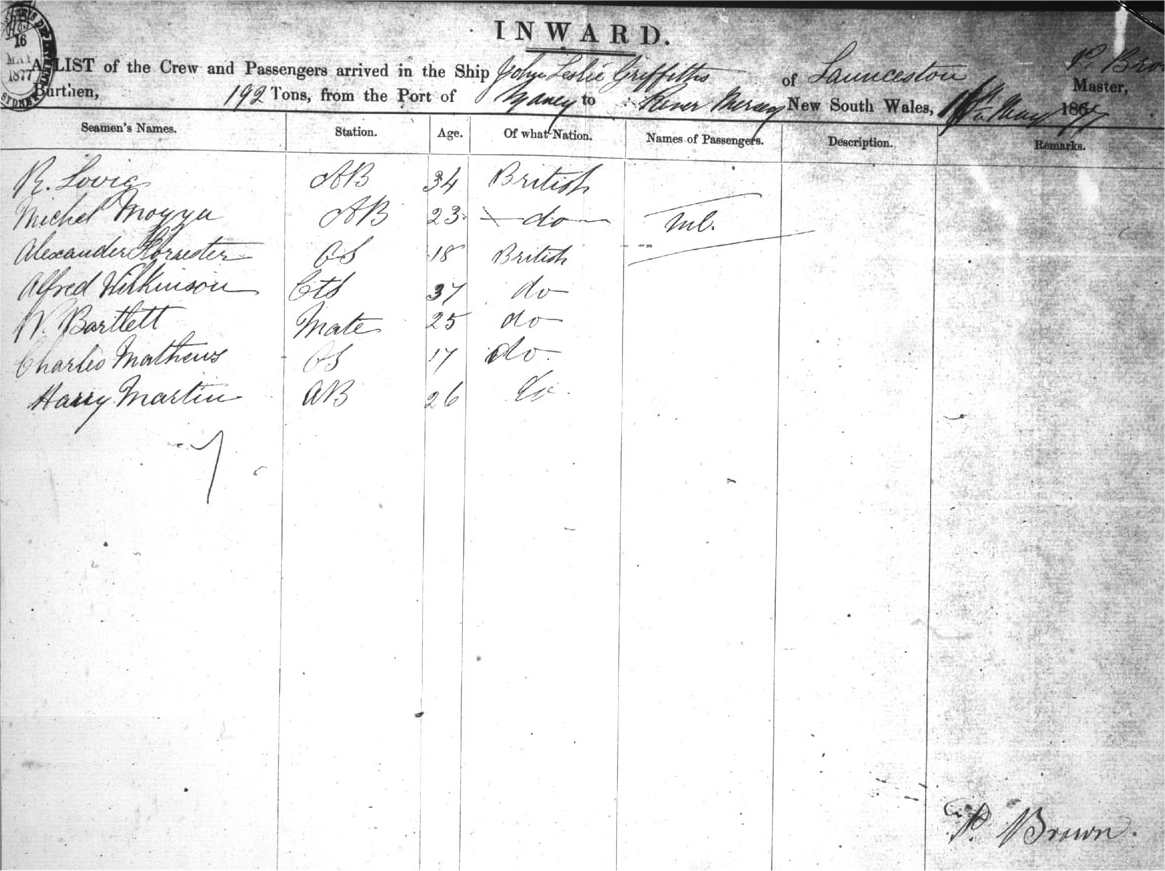 INWARD.
A LIST of the Crew and Passengers arrived in the Ship John Leslie Griffiths of Launceston P. Bro Master,
Burthen, 192 Tons, from the Port of to River Mersey New South Wales, 16th May 1877
16
MAY
1877
SYDNEY
Seamen's Names. Station. Age. Of what Nation. Names of Passengers. Description. Remarks.
R. Lovig AB 34 British
Michel Moyya AB 23 do Nil.
Alexander Forrester OS 18 British
Alfred Wilkinson Cts 37 do
W. Bartlett Mate 25 do
Charles Mathews OS 17 do
Harry Martin AB 26 do
7
P. Brown.